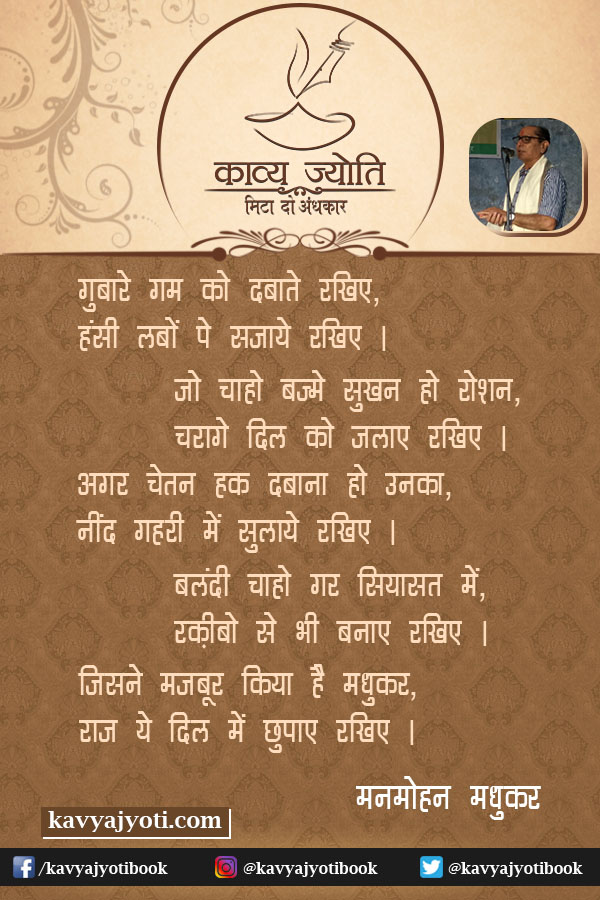 काव्य ज्योति
मिटा दो अंधकार
गुबारे गम को दबाते रखिए,
हंसी लबों पे सजाये रखिए ।
जो चाहो बज्मे सुखन हो रोशन,
चरागे दिल को जलाए रखिए ।
अगर चेतन हक दबाना हो उनका,
नींद गहरी में सुलाये रखिए ।
बलंदी चाहो गर सियासत में,
रक़ीबो से भी बनाए रखिए ।
जिसने मजबूर किया है मधुकर,
राज ये दिल में छुपाए रखिए ।
मनमोहन मधुकर
kavyajyoti.com
/kavyajyotibook @kavyajyotibook @kavyajyotibook